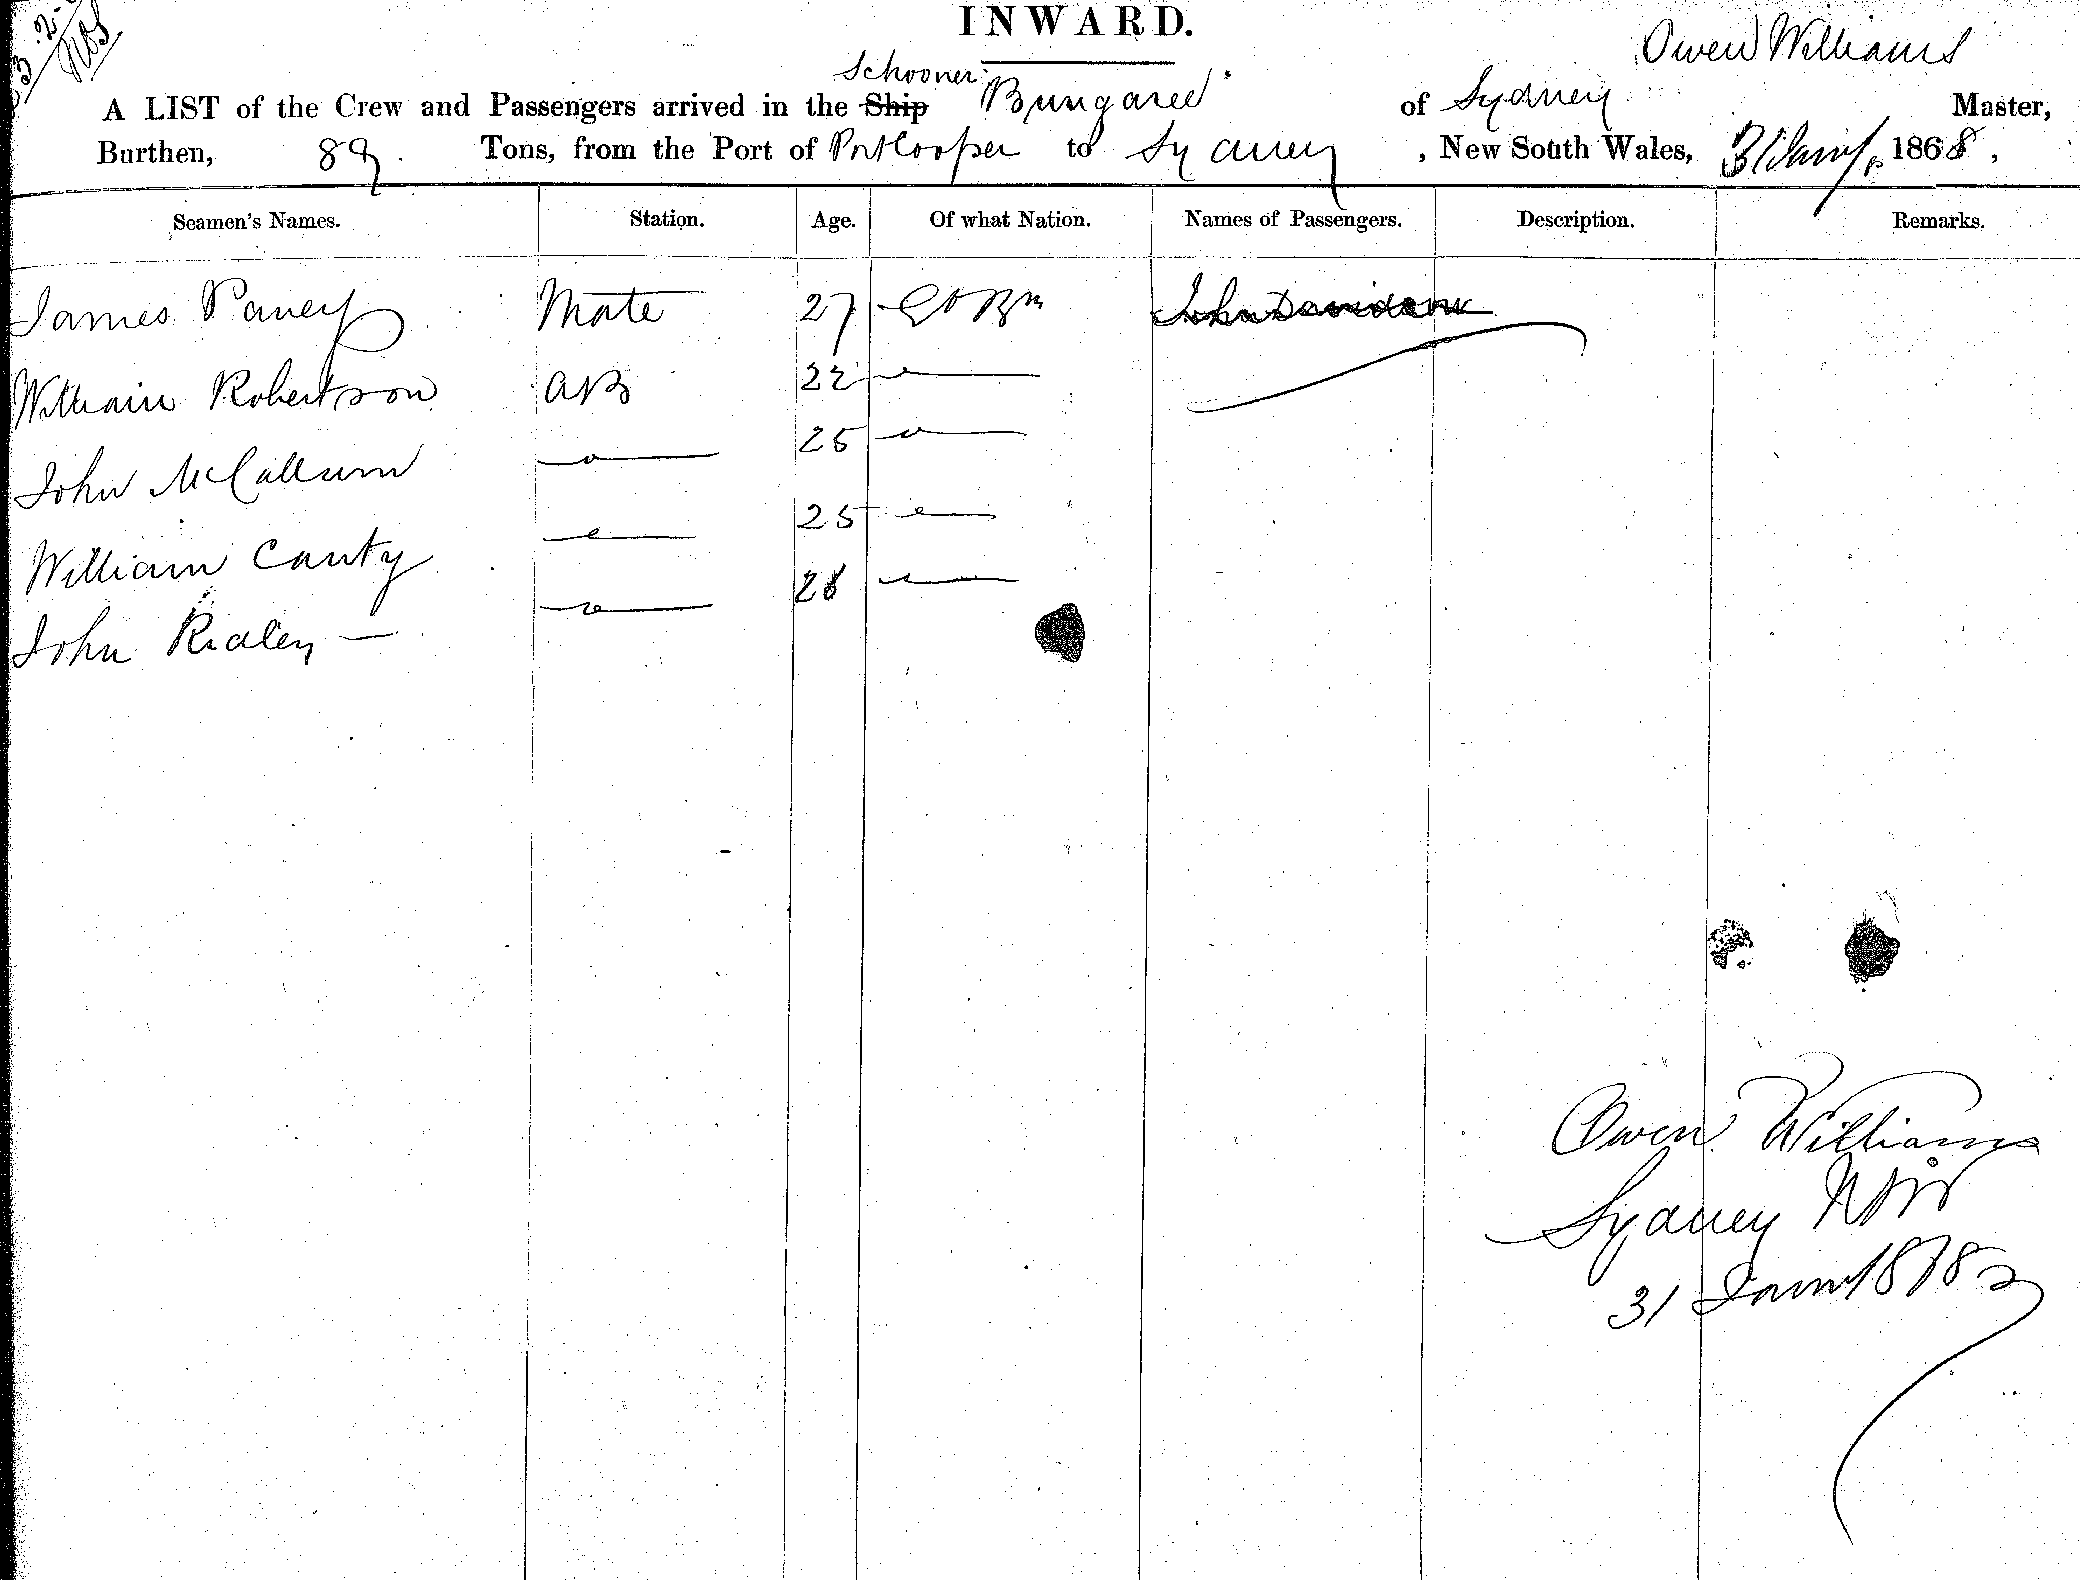 INWARD.
Owen Williams
Schooner
A LIST of the Crew and Passengers arrived in the Ship Bungaree of Sydney Master,
Burthen, 89 Tons, from the Port of Port Cooper to Sydney , New South Wales, 31 Jany. 1868,
Seamen's Names. Station. Age. Of what Nation. Names of Passengers. Description. Remarks.
James Mate 27 Gt Bn John Davidson
William Robertson AB 22
John McCallum 25
William Canty 25
John Ridley 26
Owen Williams
Sydney NSW
31